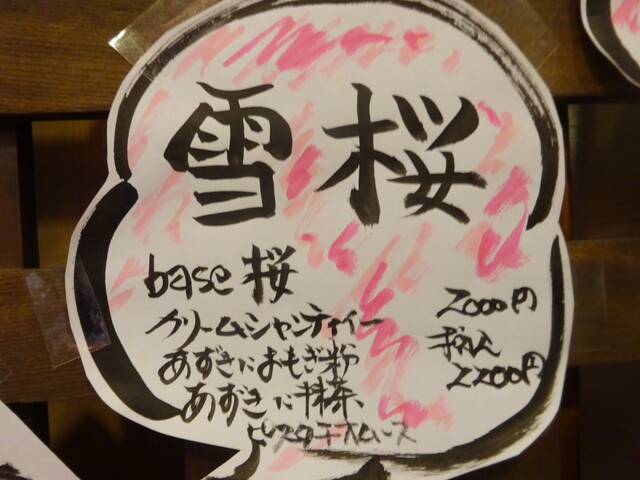 雪桜
base 桜
クリームシャンティイー
あずきによもぎ粉
あずきに抹茶、
ピスタチオムース
2000円
税込
2200円